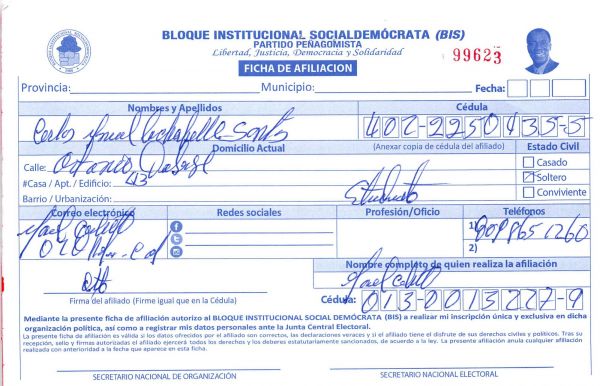 BLOQUE INSTITUCIONAL SOCIALDEMÓCRATA (BIS)
PARTIDO PEÑAGOMISTA
Libertad, Justicia, Democracia y Solidaridad
99623
FICHA DE AFILIACION
Provincia: Municipio: Fecha:
Nombres y Apellidos Cédula
Carlos 402-2250435-5
Domicilio Actual (Anexar copia de cédula del afiliado) Estado Civil
Calle: Casado
#Casa / Apt. / Edificio: 43 Soltero
Barrio / Urbanización: Estudiante Conviviente
Correo electrónico Redes sociales Profesión/Oficio Teléfonos
1) 8098651260
2)
Nombre completo de quien realiza la afiliación
Firma del afiliado (Firme igual que en la Cédula) Cédula: 013-0013227-9
Mediante la presente ficha de afiliación autorizo al BLOQUE INSTITUCIONAL SOCIAL DEMÓCRATA (BIS) a realizar mi inscripción única y exclusiva en dicha
organización política, así como a registrar mis datos personales ante la Junta Central Electoral.
La presente ficha de afiliación es válida si los datos ofrecidos por el afiliado son correctos, las declaraciones veraces y si el afiliado tiene el disfrute de sus derechos civiles y políticos. Tras su
recepción, sello y firmas autorizadas el afiliado ejercerá todos los derechos y los deberes estatutariamente sancionados, de acuerdo a la ley. La presente afiliación anula cualquier afiliación
realizada con anterioridad a la fecha que aparece en esta ficha.
SECRETARIO NACIONAL DE ORGANIZACIÓN SECRETARIO NACIONAL ELECTORAL